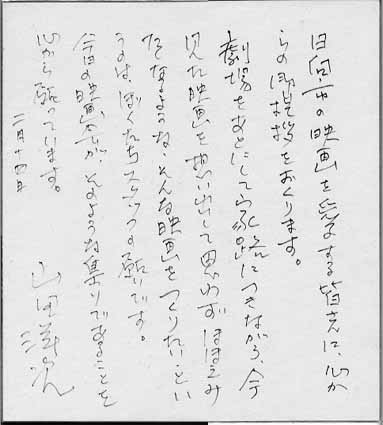 日向市の映画を愛する皆さんに、心か
らの御挨拶をおくります。
劇場をあとにして家路につきながら、今
見た映画を想い出して思わずほほえみ
たくなるような、そんな映画をつくりたい、とい
うのは、ぼくたちスタッフの願いです。
今日の映画会が、そのような集りであることを
心から願っています。
二月十四日
山田洋次